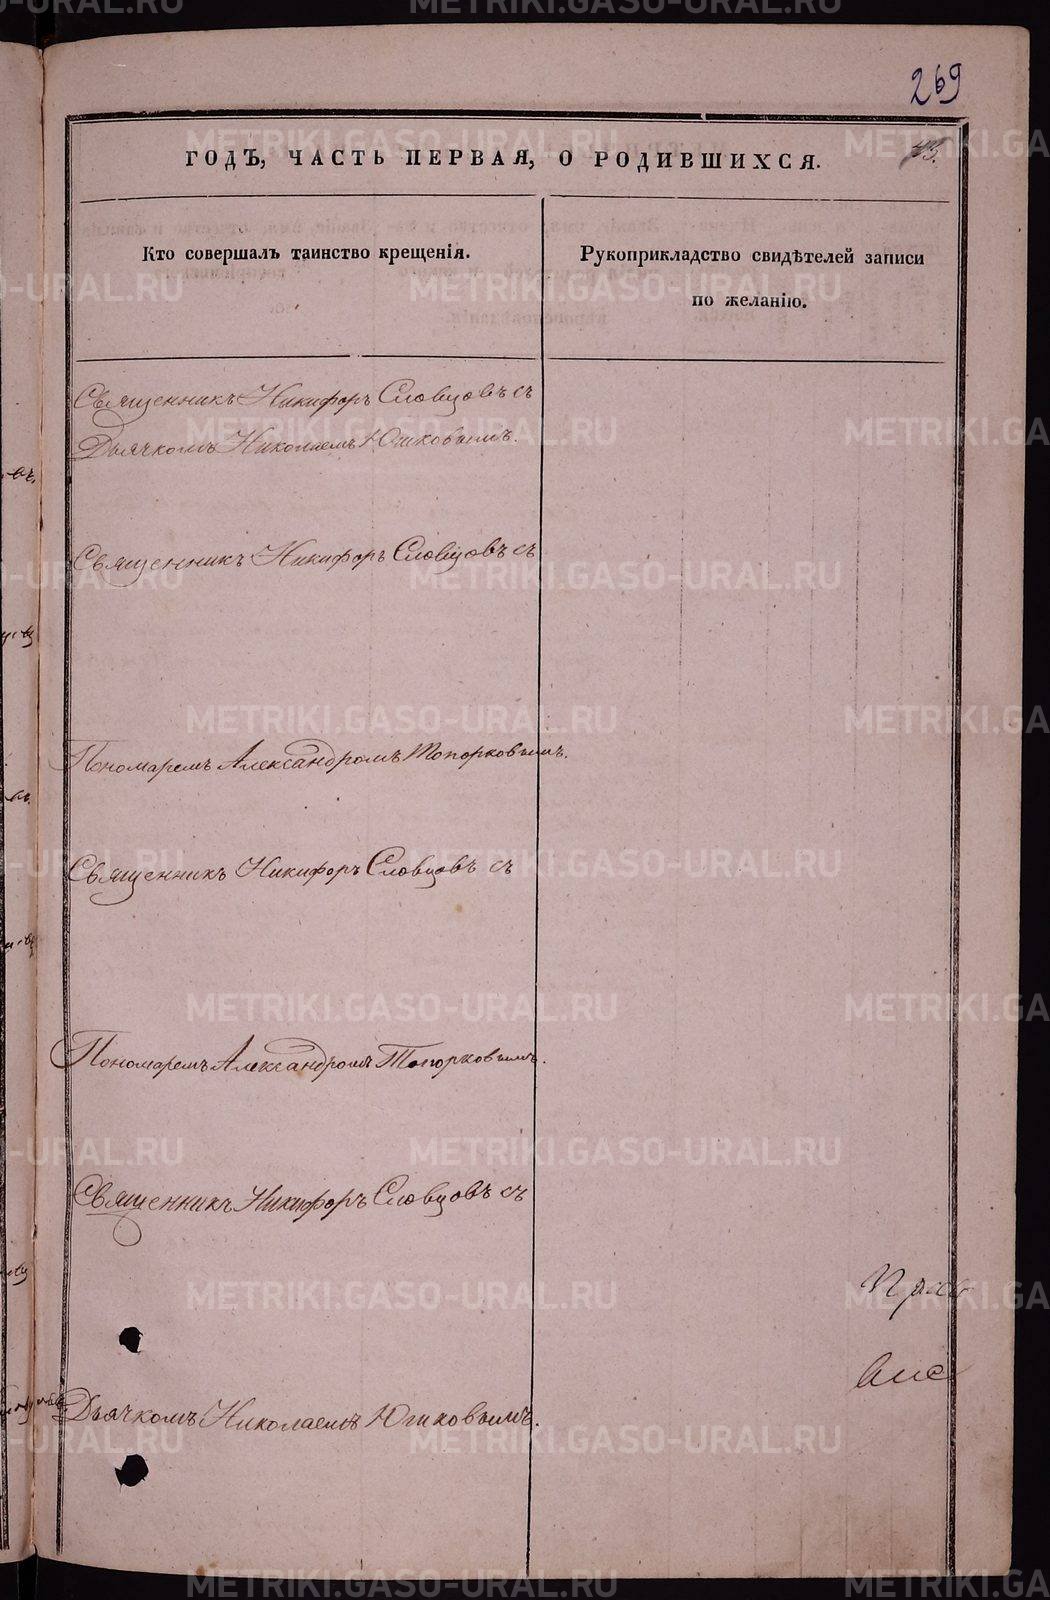 269
ГОДЪ, ЧАСТЬ ПЕРВАЯ, О РОДИВШИХСЯ.
Кто совершалъ таинство крещенія.
Рукоприкладство свидѣтелей записи
по желанію.
Священникъ Никифоръ Словцовъ съ
Дьячкомъ Николаемъ Юшковымъ.
Священникъ Никифоръ Словцовъ съ
Пономаремъ Александромъ Топорковымъ.
Священникъ Никифоръ Словцовъ съ
Пономаремъ Александромъ Топорковымъ.
Священникъ Никифоръ Словцовъ съ
Дьячкомъ Николаемъ Юшковымъ.
METRIKI.GASO-URAL.RU